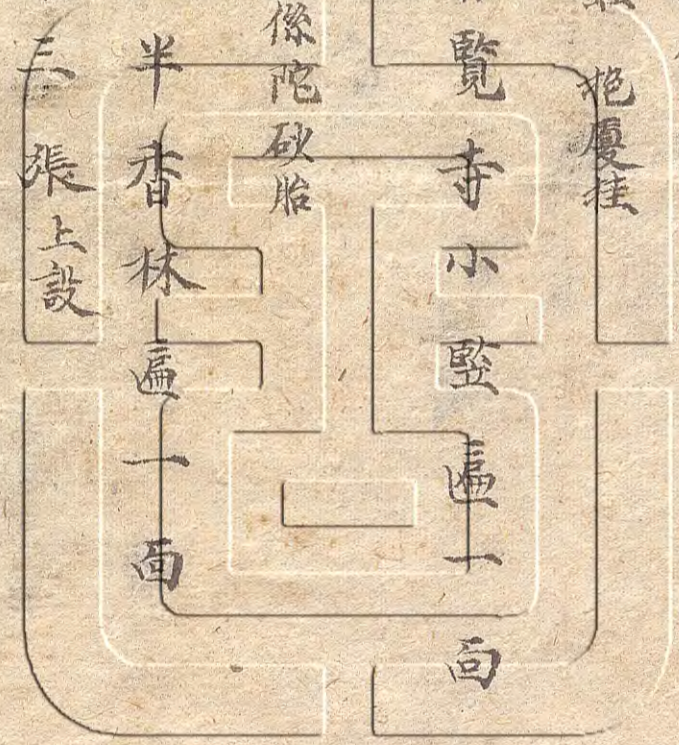 抱廈挂
覧寺小竪匾一面
係陀砂胎
半香秝匾一面
三張上設